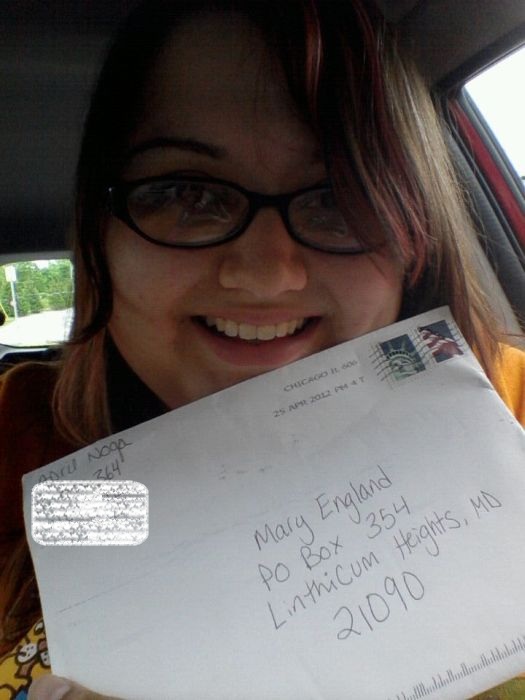 CHICAGO IL 606
25 APR 2012 PM 4 T
April Noga
364
Mary England
PO Box 354
Linthicum Heights, MD
21090